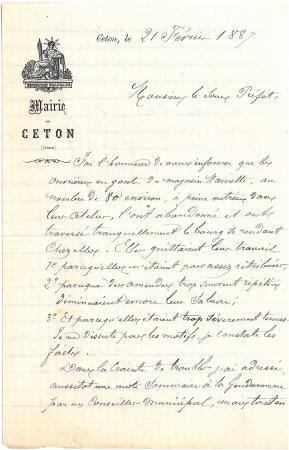 Ceton, le 21 Février 1887
RÉPUBLIQUE FRANÇAISE
Mairie
DE
CETON
(Orne)
Monsieur le Sous Préfet,
J'ai l'honneur de vous informer que les
ouvrières en gants du magasin, au
nombre de 80 environ, à peine entrées dans
leur atelier, l'ont abandonné et ont
traversé tranquillement le bourg se rendant
chez elles. Elles quittèrent leur travail
1º parcequ'elles n'étaient pas assez rétribuées,
2º parceque des amendes trop souvent répétées
diminuaient encore leur salaire;
3º Et parcequ'elles étaient trop sévèrement tenues.
Je ne discute pas les motifs, je constate les
faits.
Dans la crainte de trouble, j'ai adressé
aussitôt une note sommaire à la gendarmerie
par un Conseiller municipal, mais tout en